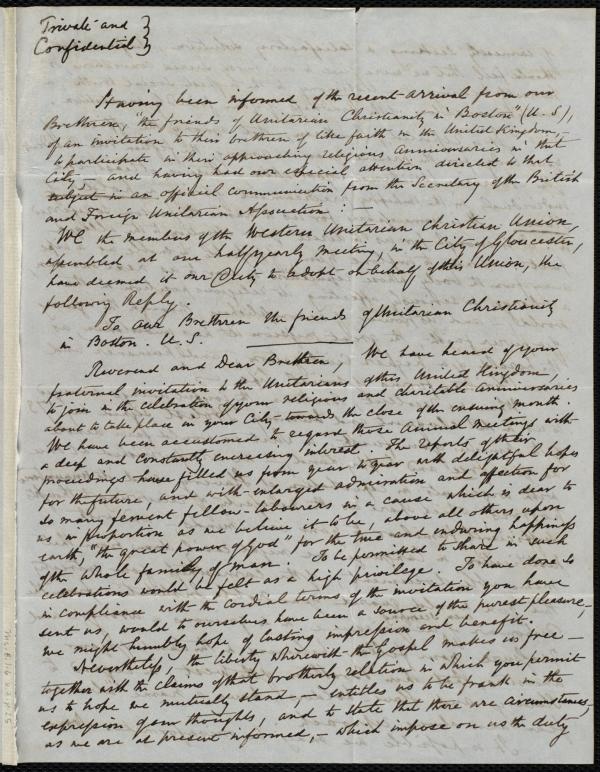 Private and
Confidential
Having been informed of the recent arrival from our
Brethren, "the friends of Unitarian Christianity in Boston" (U.S),
of an invitation to their brethren of like faith in the United Kingdom,—
to participate in their approaching religious Anniversaries in that
City,— and having had our especial attention directed to that
subject in an official communication from the Secretary of the British
and Foreign Unitarian Association:—
We the members of the Western Unitarian Christian Union,
assembled at our half yearly meeting, in the City of Gloucester,
have deemed it our Duty to adopt on behalf of this Union, the
following Reply.
To our Brethren the friends of Unitarian Christianity
in Boston. U.S.
Reverend and Dear Brethren, We have heard of your
fraternal invitation to the Unitarians of this United Kingdom,
to join in the celebration of your religious and charitable Anniversaries
about to take place in your City towards the close of the ensuing month.
We have been accustomed to regard those Annual meetings with
a deep and constantly encreasing interest. The reports of their
proceedings have filled us from year to year with delightful hopes
for the future, and with enlarged admiration and affection for
so many fervent fellow-labourers in a cause which is dear to
us in proportion as we believe it to be, above all others upon
earth, "the great power of God" for the true and enduring happiness
of the whole family of man. To be permitted to share in such
celebrations would be felt as a high privilege. To have done so
in compliance with the cordial terms of the invitation you have
sent us, would to ourselves have been a source of the purest pleasure,
we might humbly hope of lasting impression and benefit.
Nevertheless, the liberty wherewith the gospel makes us free —
together with the claims of that brotherly relation in which you permit
us to hope we mutually stand,— entitles us to be frank in the
expression of our thoughts, and to state that there are circumstances,
as we are at present informed,— which impose on us the duty